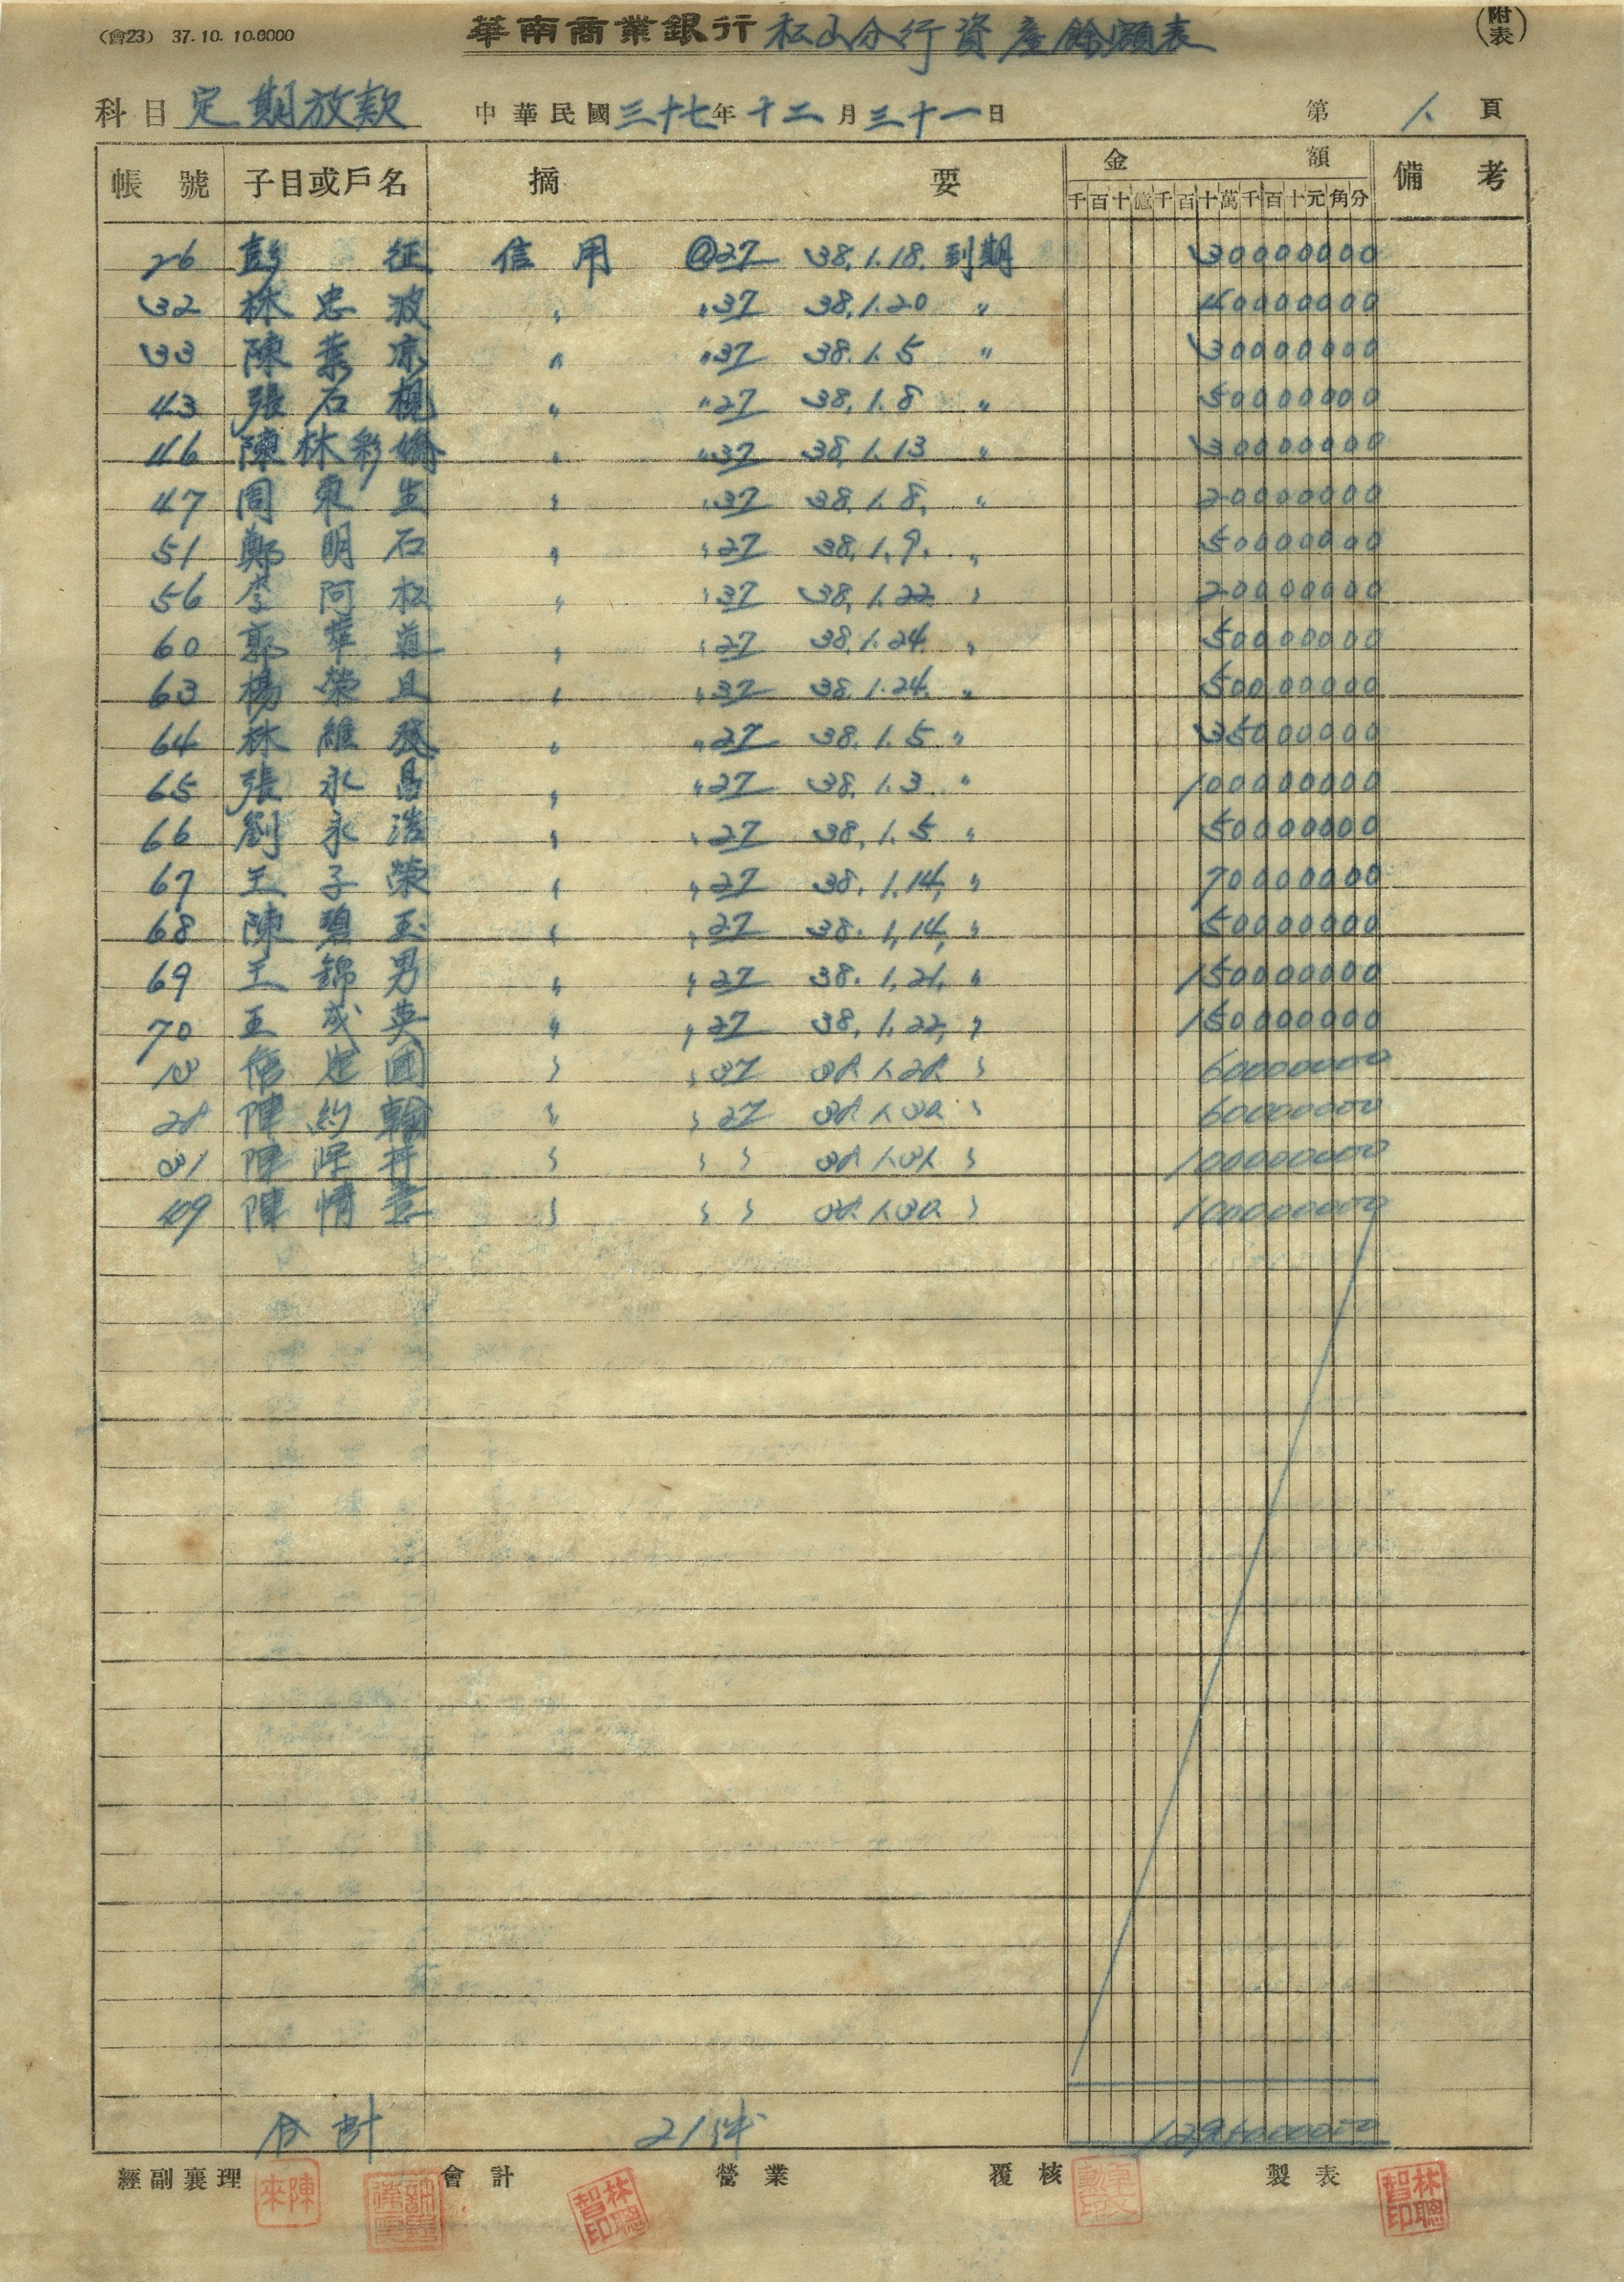 (會23) 37.10. 10.6000 華南商業銀行 松山分行資産餘額表 (附表)
科目 定期放款 中華民國三十七年十二月三十一日 第 1 頁
帳號 子目或戶名 摘要 金額 備考
千百十億千百十萬千百十元角分
26 彭征 信用 @27 38.1.18. 到期 30000000
32 林忠波 〃 〃37 38.1.20 〃 40000000
33 陳葉 〃 〃37 38.1.5 〃 30000000
43 張石 〃 〃27 38.1.8 〃 50000000
46 陳林彩嬌 〃 〃37 38.1.13 〃 30000000
47 周東生 〃 〃37 38.1.8. 〃 20000000
51 鄭明石 〃 〃27 38.1.9. 〃 50000000
56 李阿松 〃 〃37 38.1.22. 〃 20000000
60 郭華道 〃 〃27 38.1.24. 〃 50000000
63 楊榮且 〃 〃37 38.1.24. 〃 50000000
64 林維發 〃 〃27 38.1.5 〃 35000000
65 張永昌 〃 〃27 38.1.3 〃 100000000
66 劉永浩 〃 〃27 38.1.5 〃 50000000
67 王子榮 〃 〃27 38.1.14, 〃 70000000
68 陳碧玉 〃 〃27 38.1,14, 〃 50000000
69 王錦男 〃 〃27 38.1,21, 〃 150000000
70 王成英 〃 〃27 38.1.22, 〃 150000000
13 國 〃 〃37 38.1.28 〃 60000000
28 陳約翰 〃 〃27 38.1.30 〃 60000000
31 陳 〃 〃 〃 38.1.31 〃 100000000
49 陳情 〃 〃 〃 38.1.30 〃 100000000
合計 21件 1295000000
經副襄理 陳來 會計 林聰智印 營業 覆核 製表 林聰智印